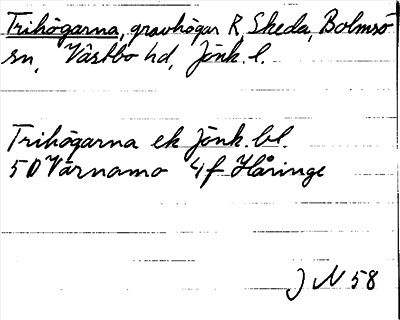 Trihögarna, gravhögar R, Skeda, Bolmsö
sn, Västbo hd, Jönk. l.
Trihögarna ek Jönk. bl.
5D Värnamo 4f Håringe
J N 58